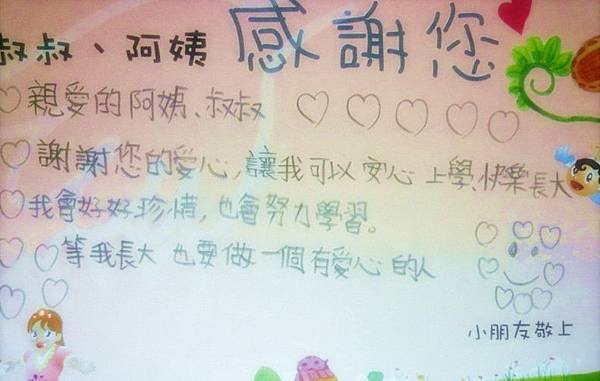 叔叔、阿姨 感謝您
親愛的阿姨、叔叔
謝謝您的愛心,讓我可以安心上學、快樂長大
我會好好珍惜,也會努力學習。
等我長大也要做一個有愛心的人
小朋友敬上